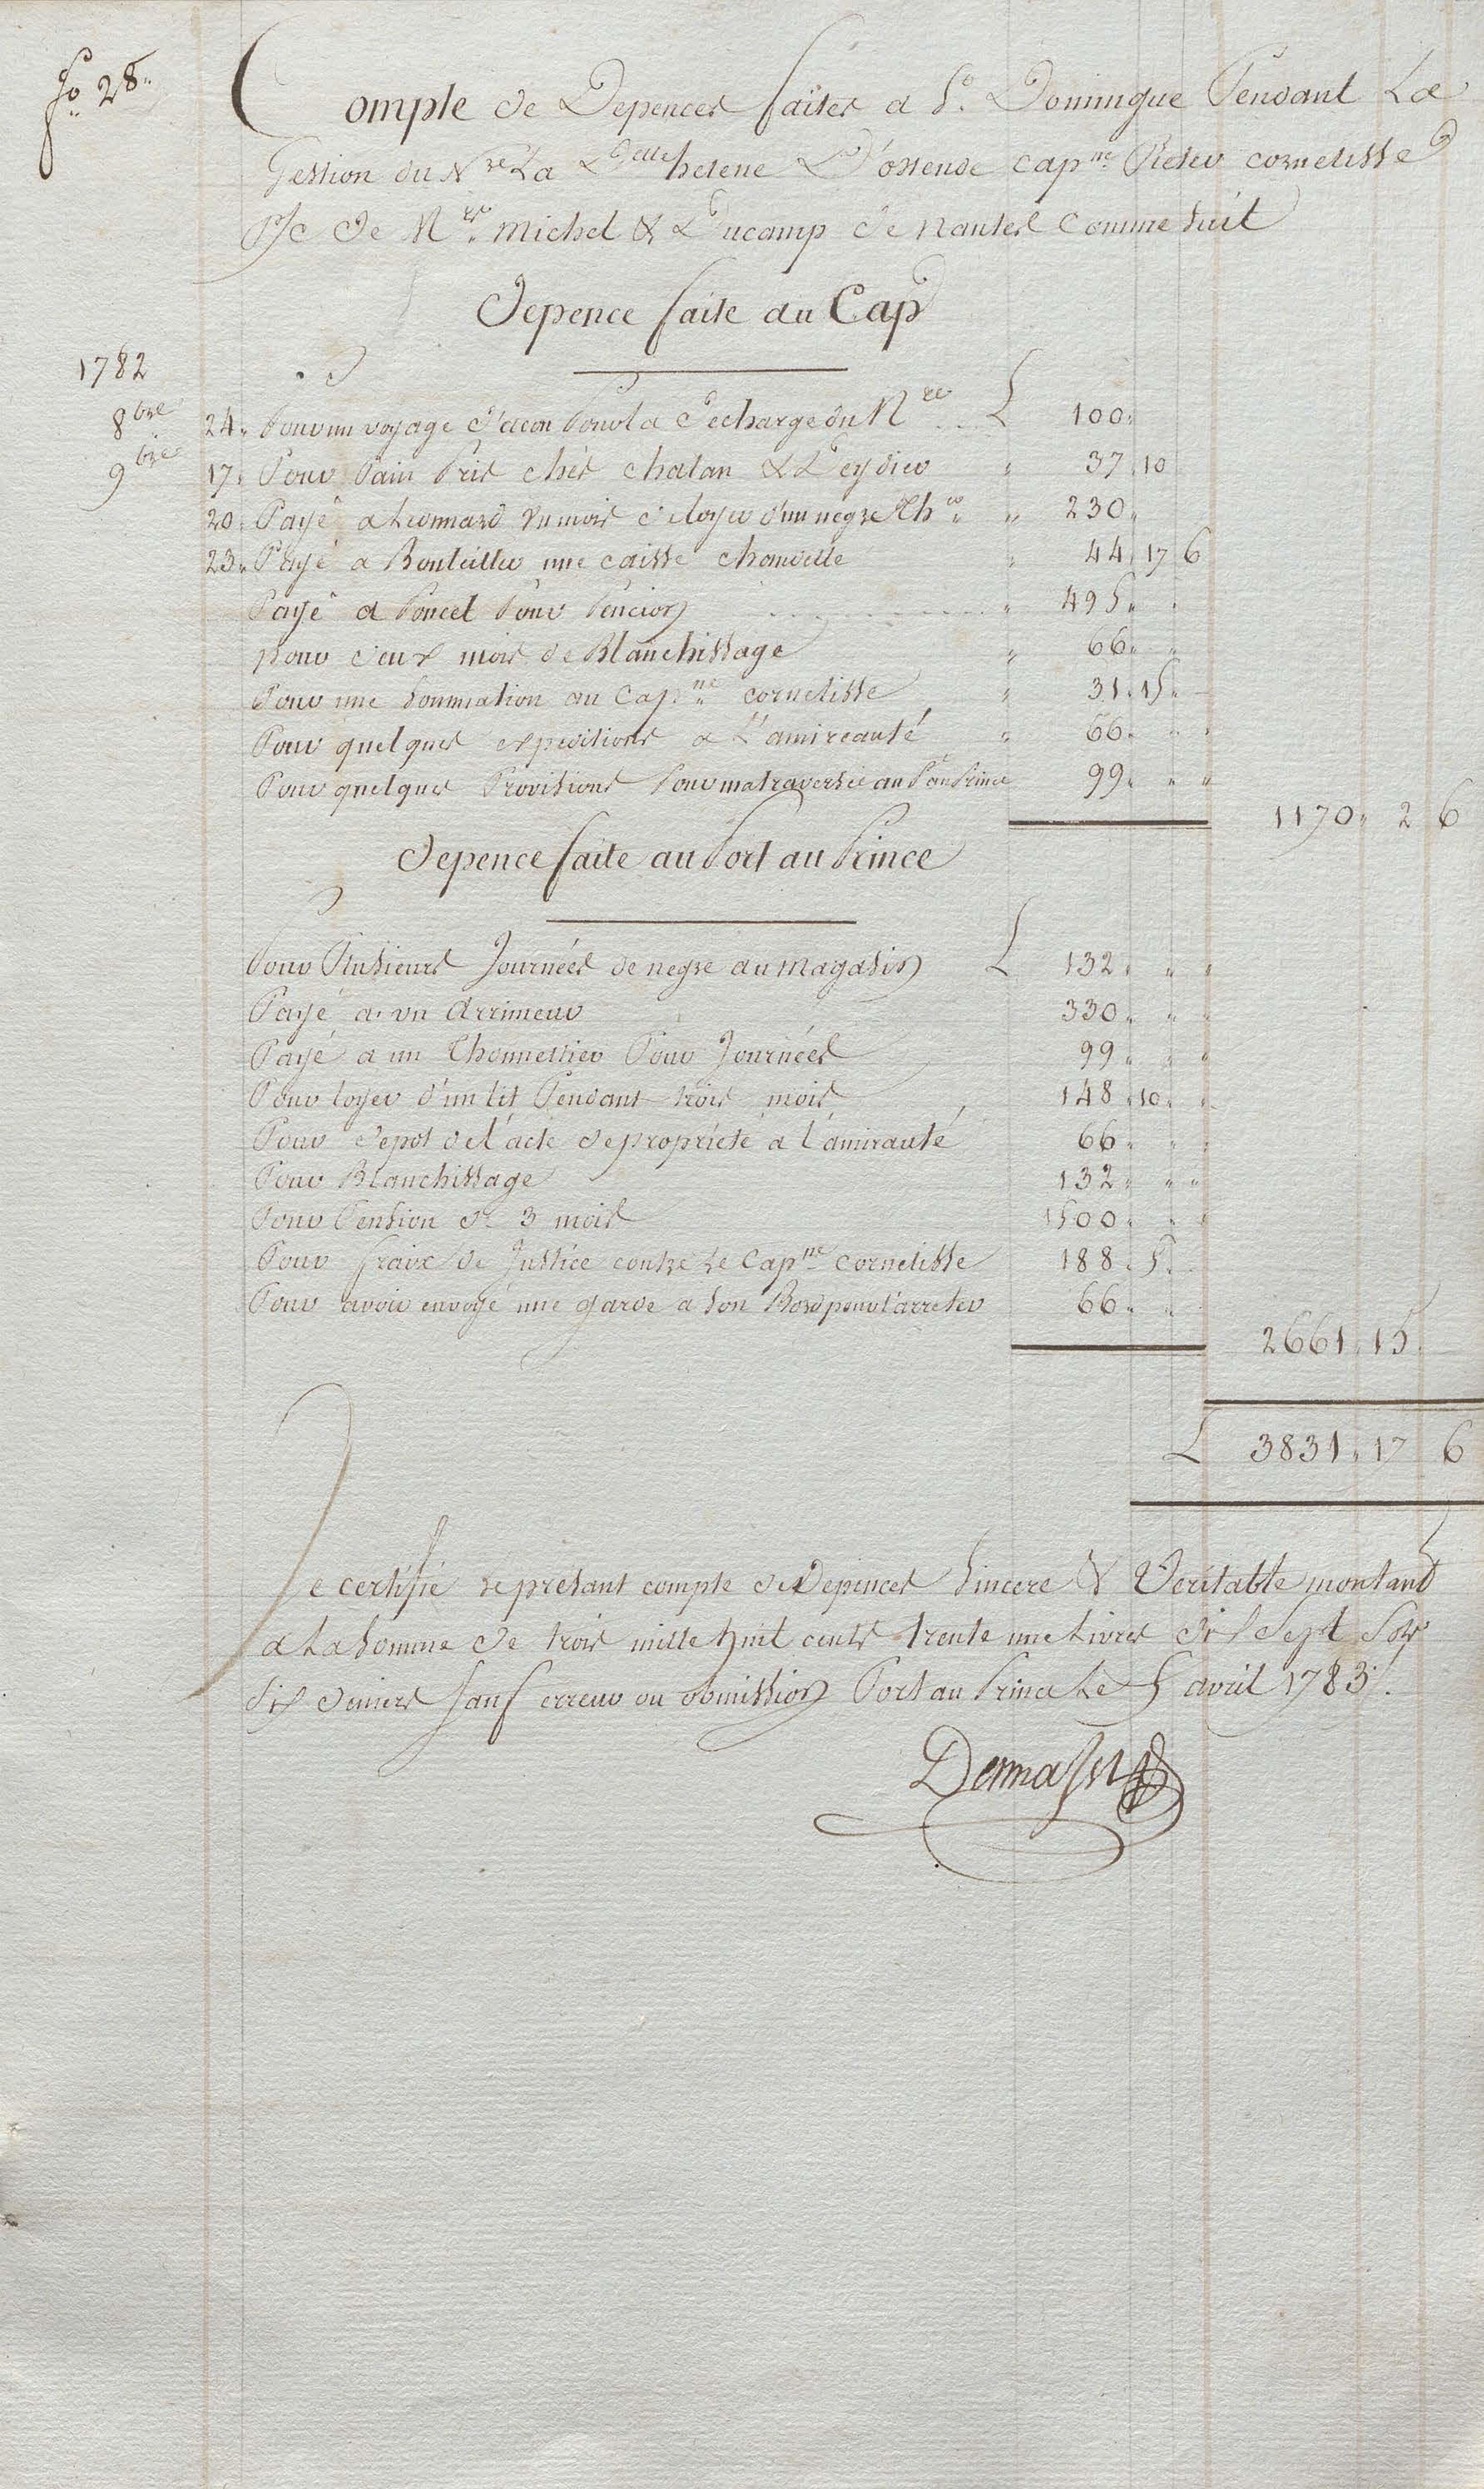 fo 28.
Compte de Depences faites a St. Domingue Pendant La
Gestion du Nre La Delle helene D'ostende capne Pieter cornelisse
P/c de Mrs. Michel & Ducamp de Nantes Comme suit
Depence faite au Cap
1782
8bre 24. Pour un voyage d'acon Pour la decharge du Nre £ 100.
9bre 17. Pour Pain Pris chés chatan & Deydier " 37 10
20. Payé a Leonnard un mois de loyer d'un negre " 230.
23. Payé a Bouteiller une caisse chandelle " 44 17 6
Payé a Poncet Pour Pencion " 495. "
pour deux mois de Blanchissage " 66. "
Pour une Sommation au Capne cornelisse " 31. 15.
Pour quelques expeditions a L'amireauté " 66. " "
Pour quelques Provisions Pour ma traversée au P. au Prince 99. " "
1170. 2 6
Depence faite au Port au Prince
Pour Plusieurs Journées de negre au Magasin £ 132. " "
Payé a un Arrimeur 330. " "
Payé a un Thonnellier Pour Journées 99. " "
Pour loyer d'un lit Pendant trois mois 148. 10. "
Pour depot de l'acte de propriété a l'amirauté 66. " "
Pour Blanchissage 132. " "
Pour Pension de 3 mois 1500. " "
Pour fraix de Justice contre Le Capne cornelisse 188. 5.
Pour avoir envoyé une garde a son Bord pour l'arreter 66. "
2661. 15.
£ 3831. 17 6
Je certifie le présant compte de Depences Sincere & Veritable montant
a La Somme de trois mille huit cents trente une Livres dix Sept Sols
Six deniers Sauf erreur ou obmission Port au Prince Le 5 avril 1783.